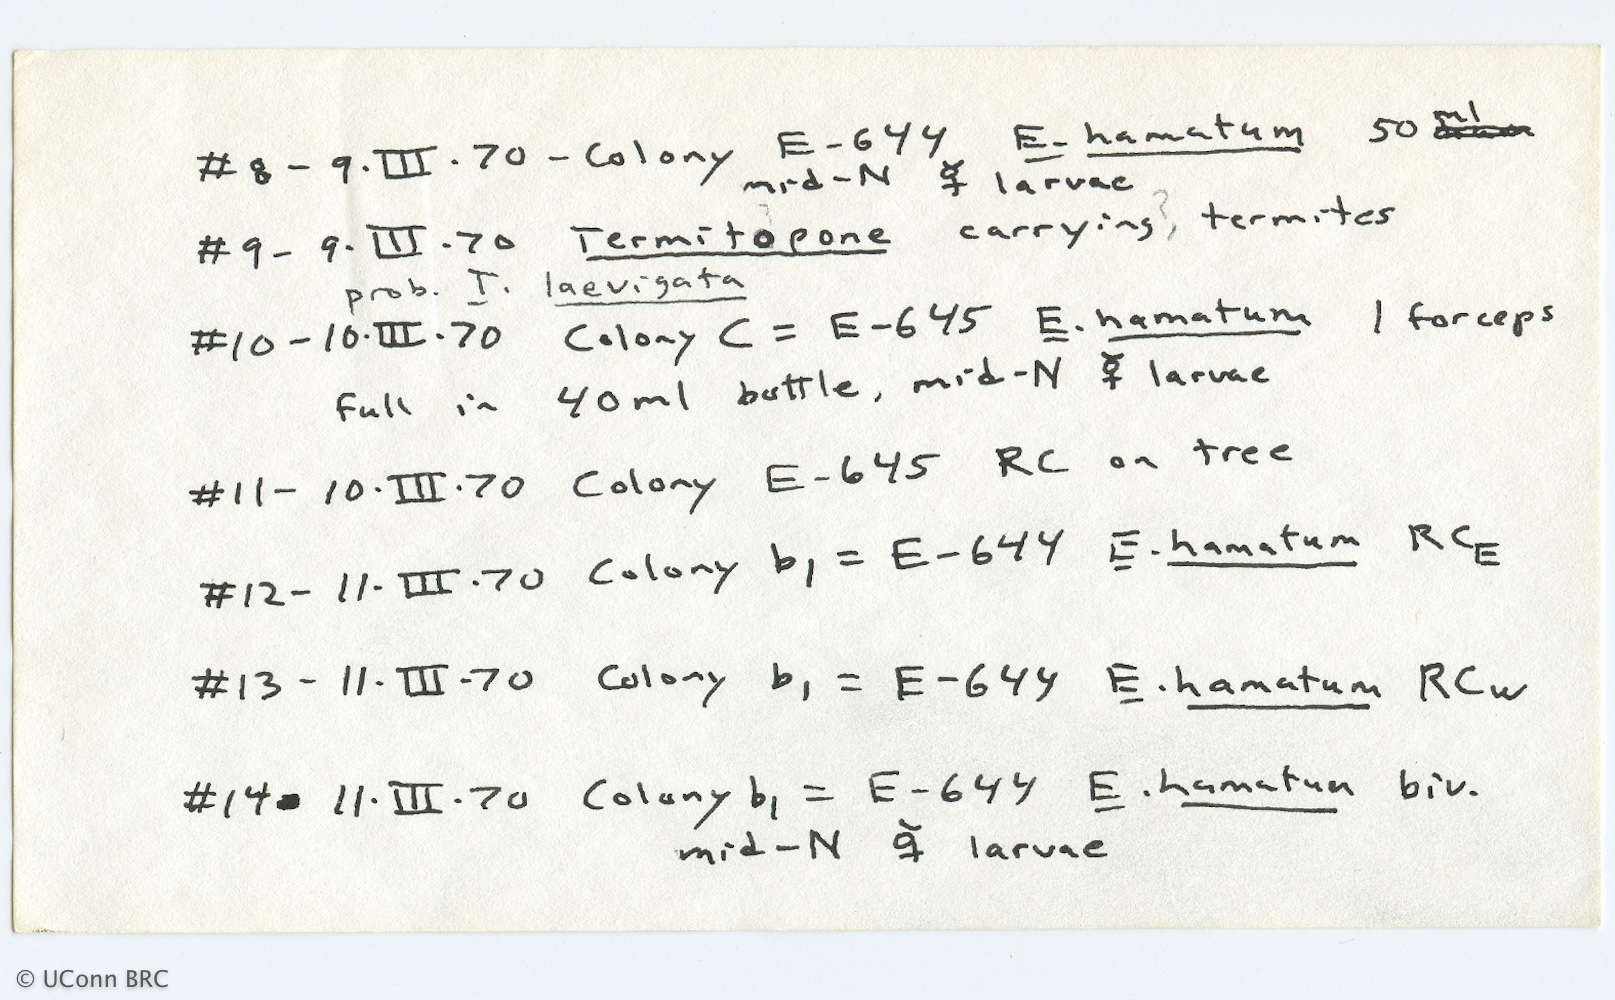 #8 - 9.III.70 - Colony E-644 E. hamatum 50 ml
mid-N ☿ larvae
#9 - 9.III.70 Termitopone carrying termites
prob. T. laevigata
#10 - 10.III.70 Colony C = E-645 E. hamatum 1 forceps
full in 40ml bottle, mid-N ☿ larvae
#11 - 10.III.70 Colony E-645 RC on tree
#12 - 11.III.70 Colony b1 = E-644 E. hamatum RCE
#13 - 11.III.70 Colony b1 = E-644 E. hamatum RCW
#14 - 11.III.70 Colony b1 = E-644 E. hamatum biv.
mid-N ☿ larvae
© UConn BRC